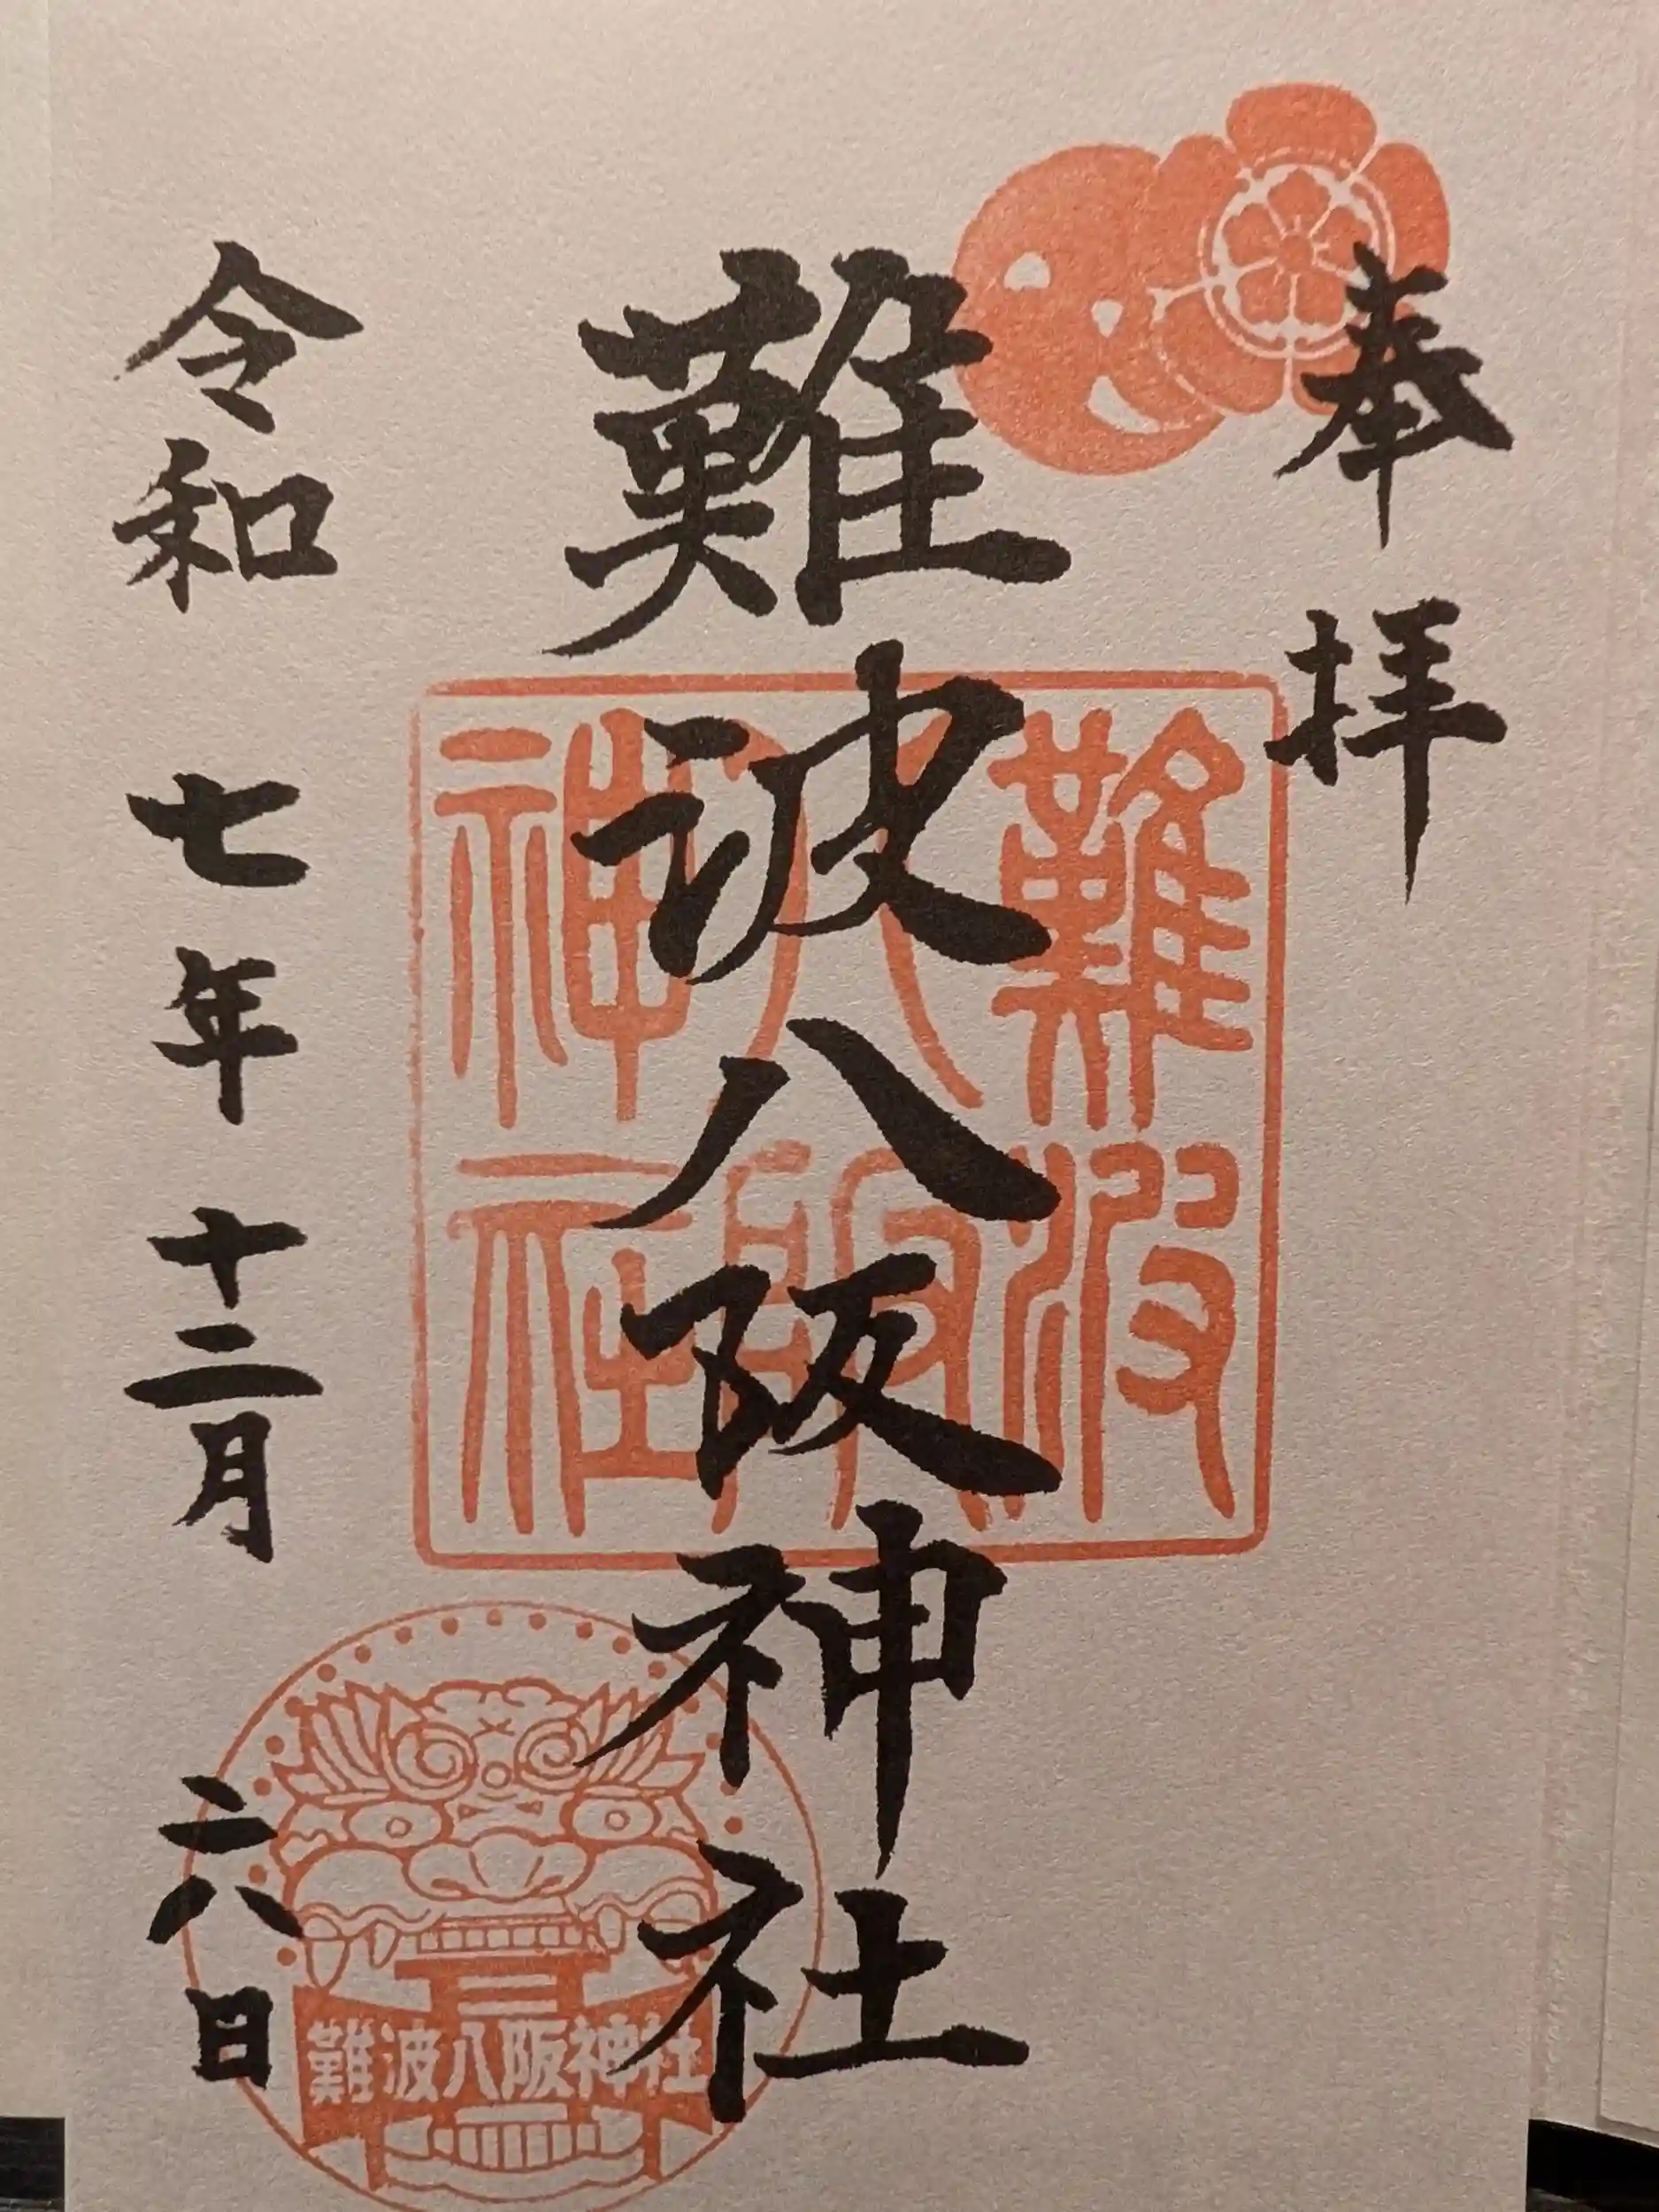 奉拝
難波八阪神社
難波
八阪
神社
令和七年十二月六日
難波八阪神社